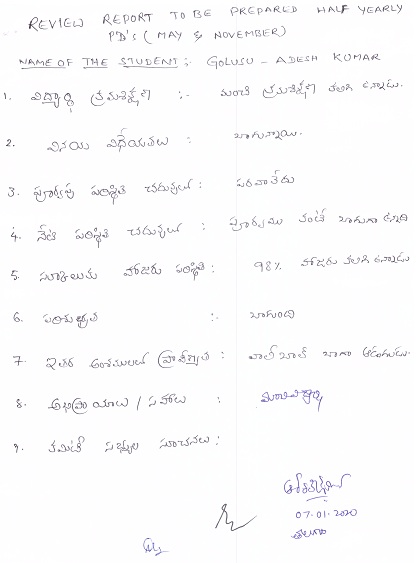 REVIEW REPORT TO BE PREPARED HALF YEARLY
PD's (MAY & NOVEMBER)
NAME OF THE STUDENT :- GOLUSU - ADESH KUMAR
1. విద్యార్థి క్రమశిక్షణ :- మంచి క్రమశిక్షణ కలిగి ఉన్నాడు.
2. వినయ విధేయతలు : బాగున్నాయి.
3. పూర్వపు పరిస్థితి చదువులో : పరవాలేదు
4. నేటి పరిస్థితి చదువులో : పూర్వము కంటే బాగుగా ఉన్నది
5. స్కూలుకు హాజరు పరిస్థితి : 98% హాజరు కలిగి ఉన్నాడు
6. పరిశుభ్రత :- బాగుంది
7. ఇతర అంశములలో ప్రావీణ్యత : వాలీబాల్ బాగా ఆడుతాడు.
8. అభిప్రాయాలు / సలహాలు : మంచి విద్యార్థి
9. కమిటీ సభ్యుల సూచనలు :
07.01.2020
తెలుగు